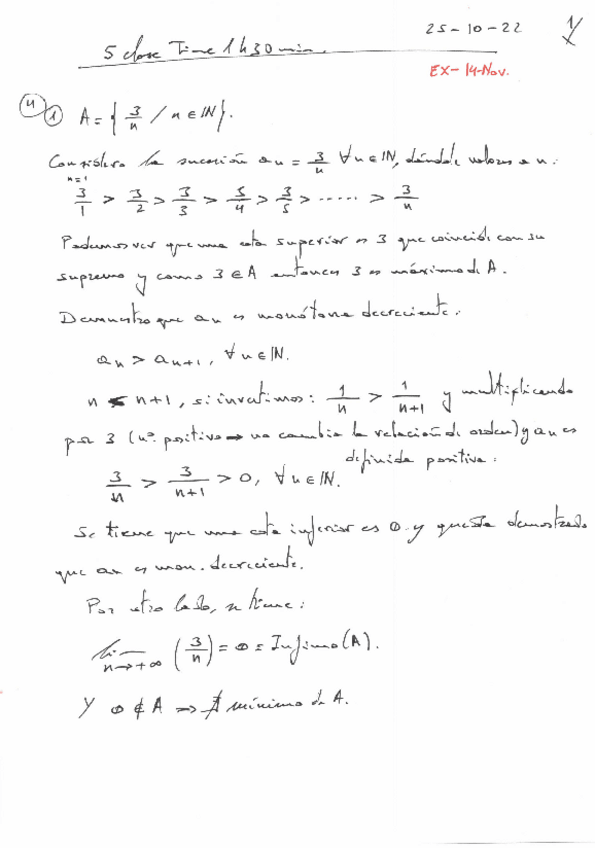 25-10-22 1/
5 clase Time 1h30min.
EX-14-Nov.
4 1 A = { 3/n / n ∈ IN }.
Considero la sucesión an = 3/n ∀n∈IN, dándole valores a n:
n=1
3/1 > 3/2 > 3/3 > 3/4 > 3/5 > ..... > 3/n
Podemos ver que una cota superior es 3 que coincide con su
supremo y como 3 ∈ A entonces 3 es máximo de A.
Demuestro que an es monótona decreciente:
an > an+1, ∀n∈IN.
n < n+1, si invertimos: 1/n > 1/n+1 y multiplicando
por 3 (nº positivo → no cambia la relación de orden) y an es
definida positiva:
3/n > 3/n+1 > 0, ∀n∈IN.
Se tiene que una cota inferior es 0 y queda demostrado
que an es mon. decreciente.
Por otro lado, se tiene:
lim n→+∞ (3/n) = 0 = Infimo(A).
Y 0 ∉ A ⇒ ∄ mínimo de A.